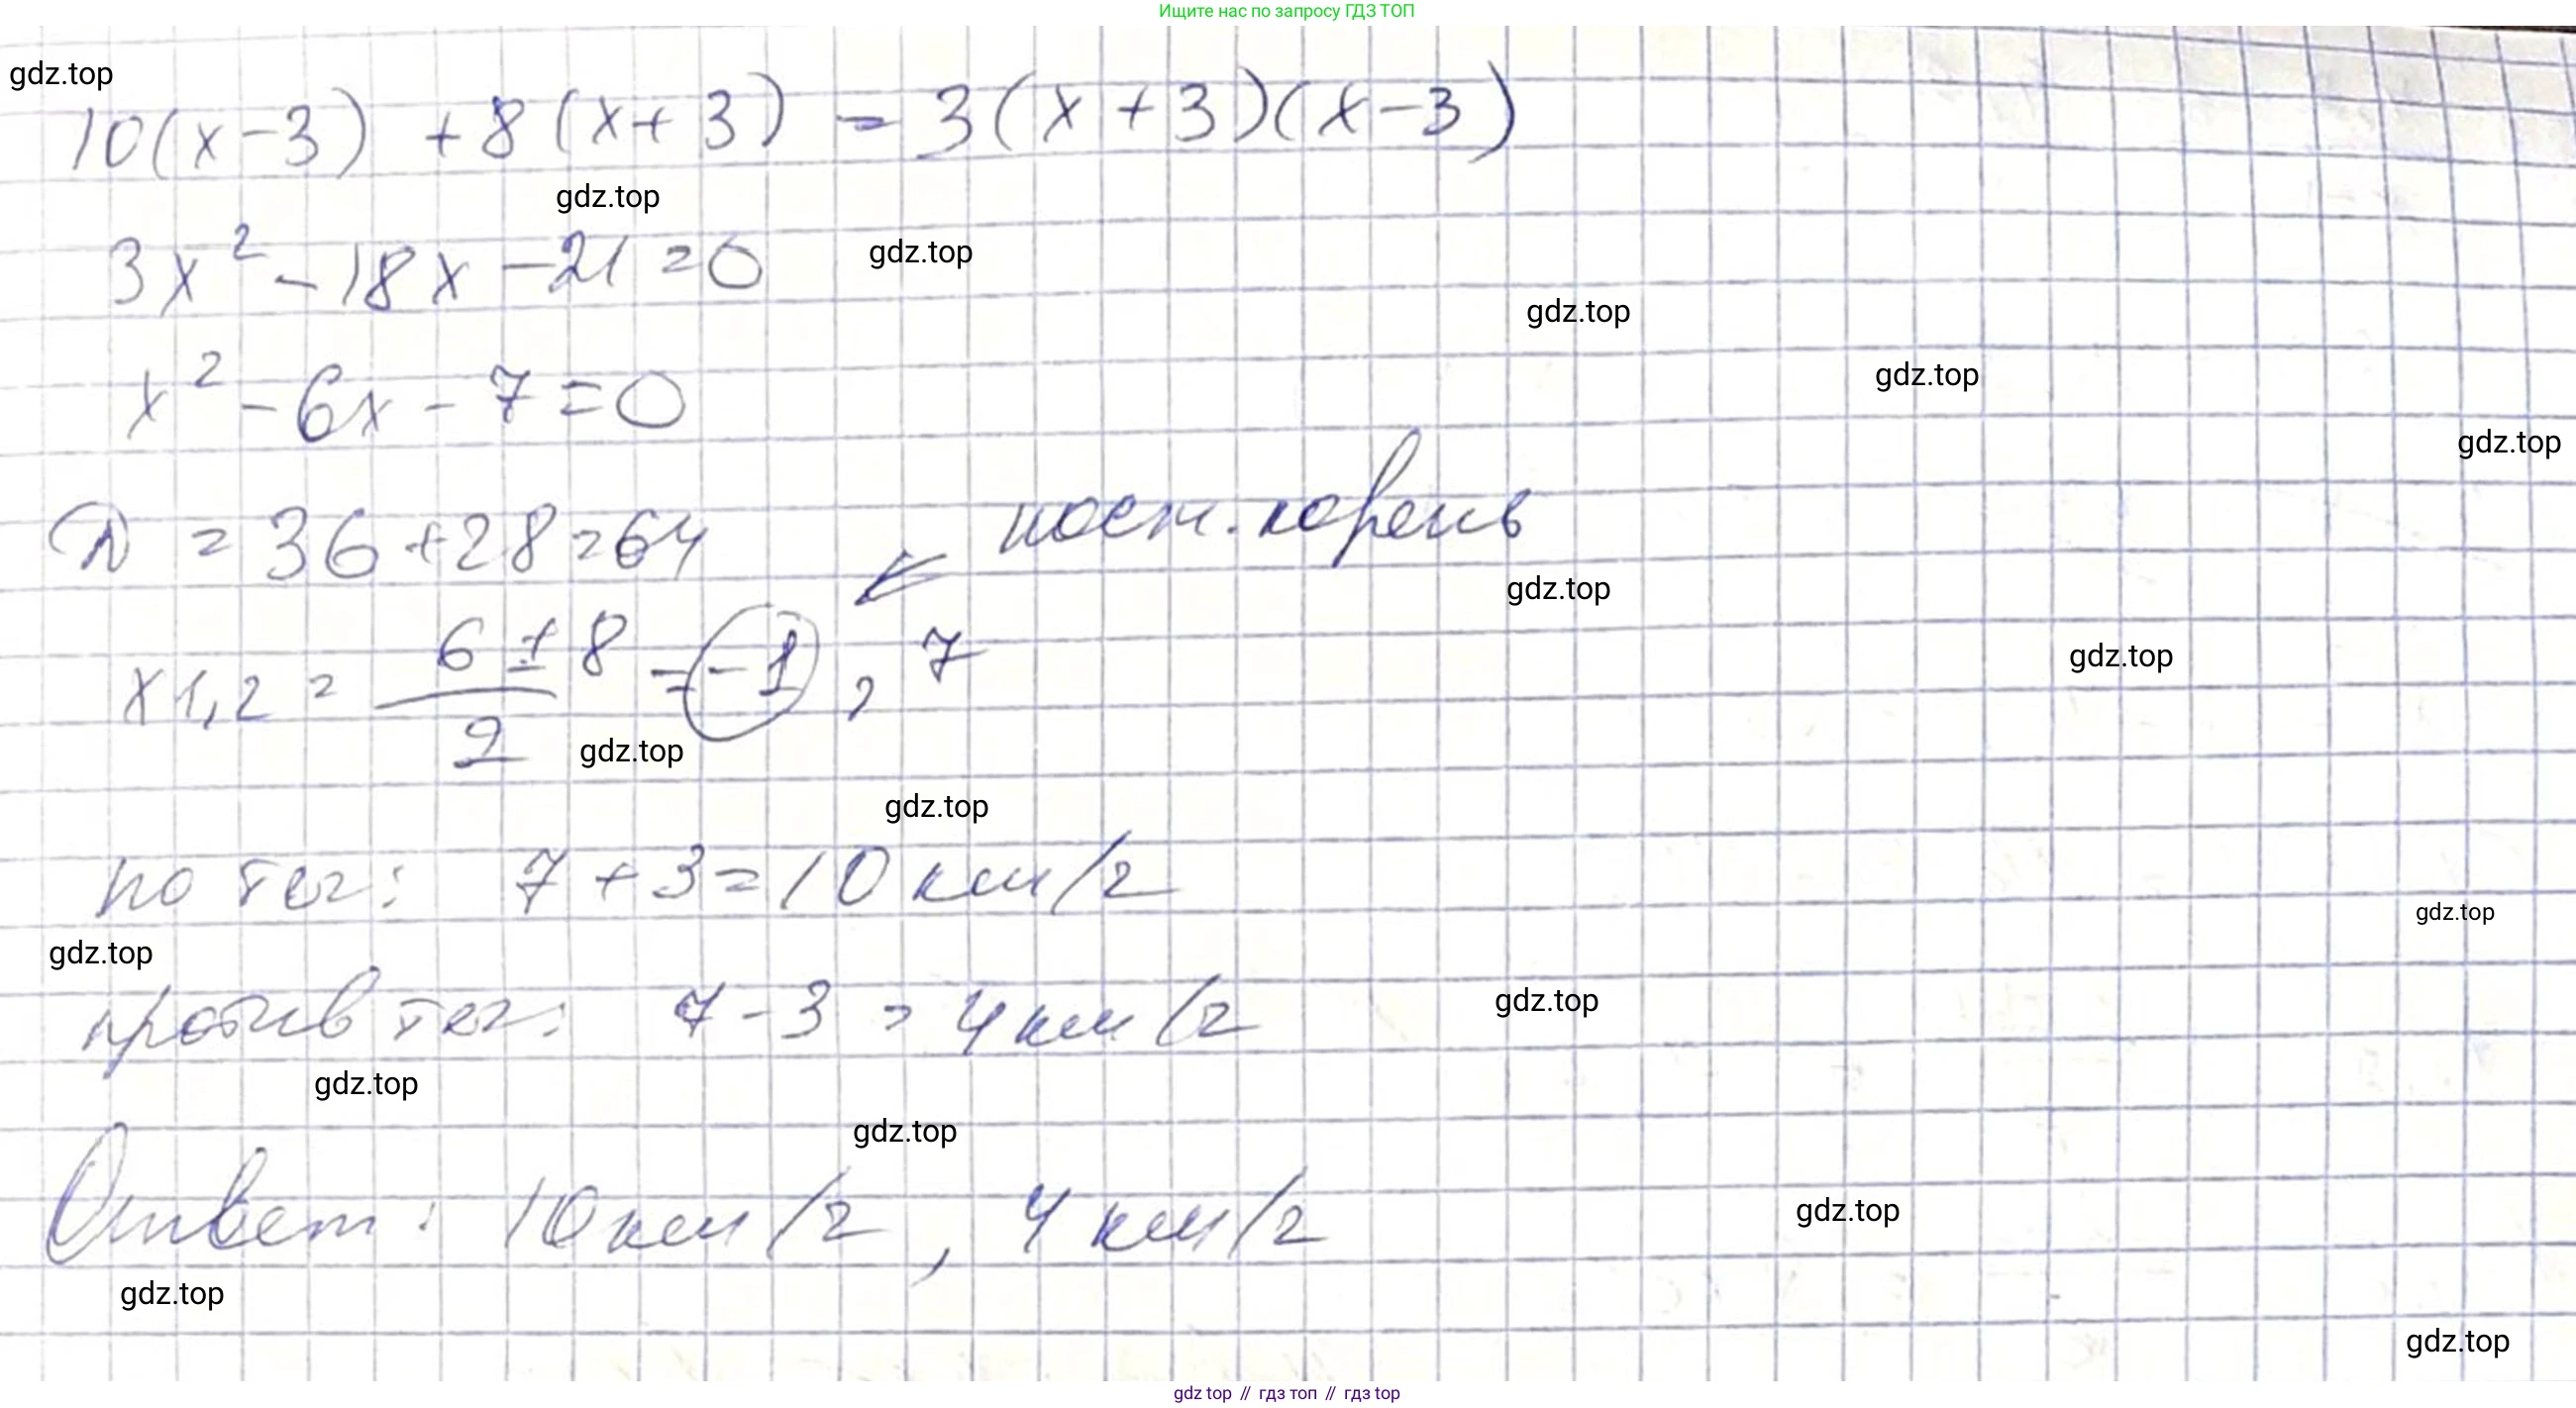 Ищите нас по запросу ГДЗ ТОП
gdz.top
10(x-3) +8(x+3) = 3(x+3)(x-3)
gdz.top
3x² - 18x - 21 = 0
gdz.top
gdz.top
x² - 6x - 7 = 0
gdz.top
gdz.top
D = 36 + 28 = 64
пост. корень
gdz.top
x1,2 = (6 ± 8)/2 = -1, 7
gdz.top
gdz.top
gdz.top
по теч: 7 + 3 = 10 км/г
gdz.top
gdz.top
против теч: 7 - 3 = 4 км/г
gdz.top
gdz.top
gdz.top
Ответ: 10 км/г, 4 км/г
gdz.top
gdz.top
gdz.top
gdz top // гдз топ // гдз top